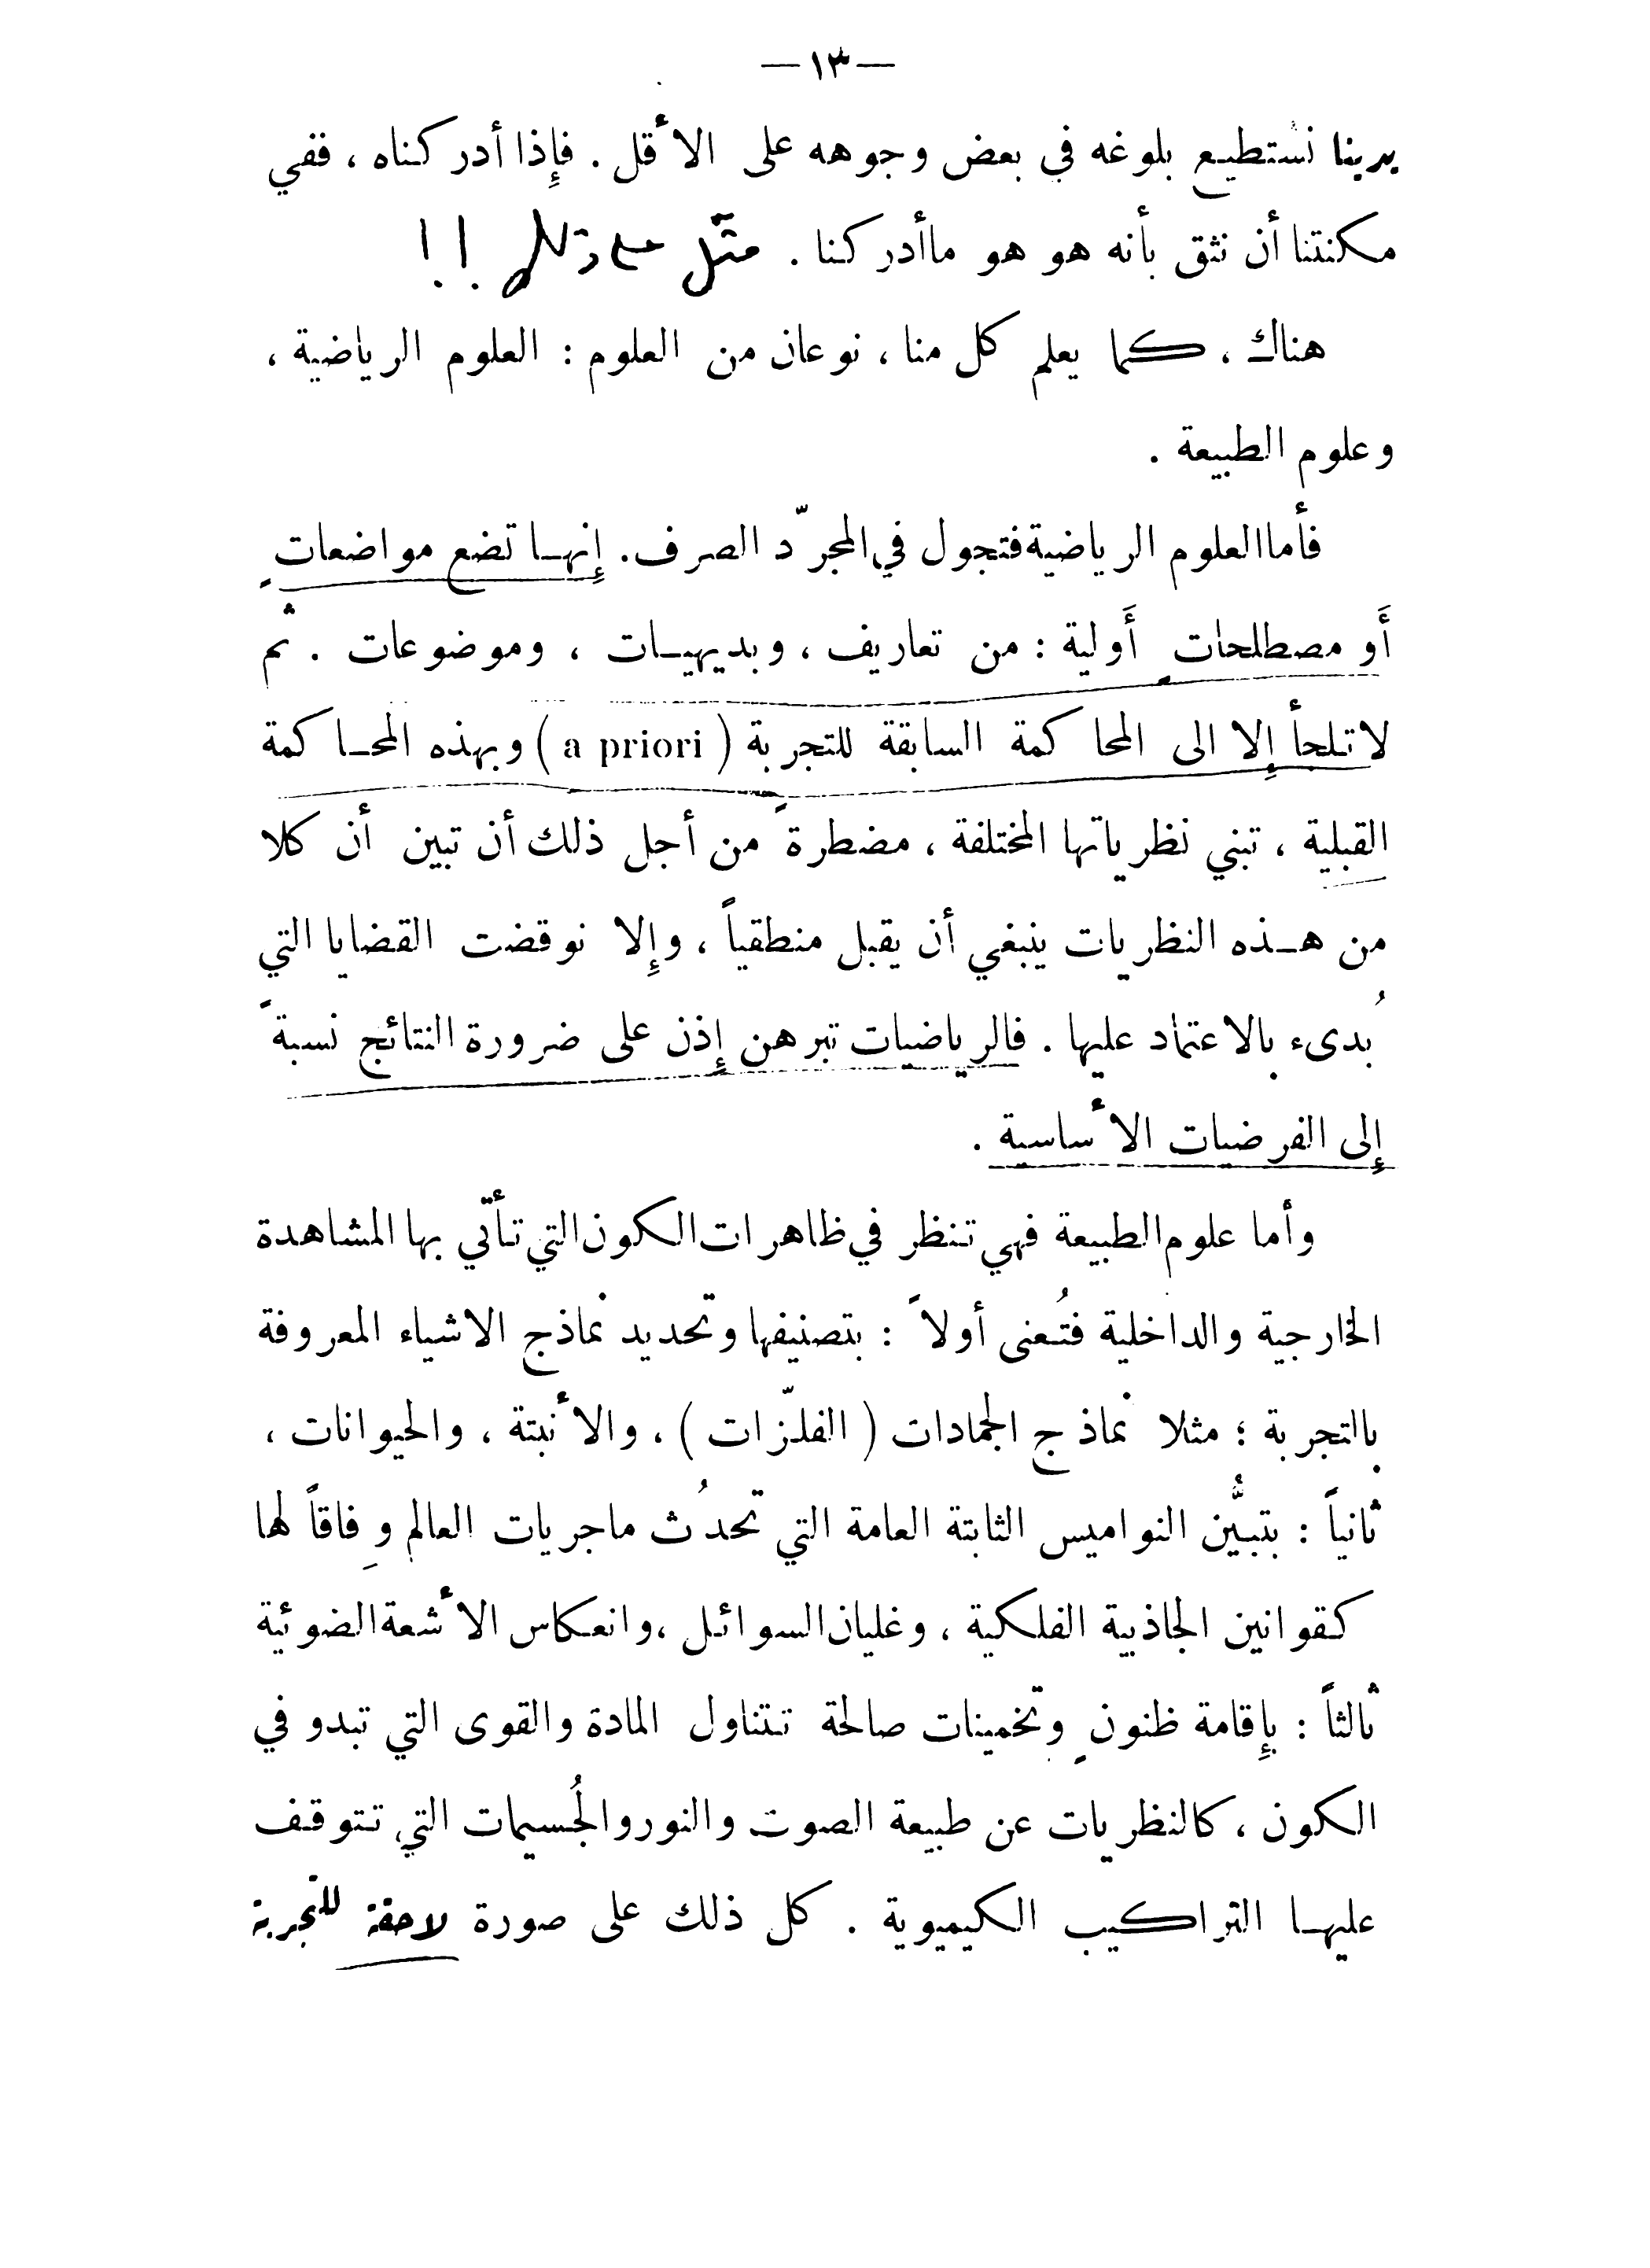 — ١٣ —
يدينا نستطيع بلوغه في بعض وجوهه على الأقل . فإِذا أدركناه ، ففي
مكنتنا أن نثق بأنه هو هو ماأدركنا . مثّل على ذلك !!
هناك ، كما يعلم كل منا ، نوعان من العلوم : العلوم الرياضية ،
وعلوم الطبيعة .
فأما العلوم الرياضية فتجول في المجرّد الصرف . إِنها تضع مواضعاتٍ
أَو مصطلحاتٍ أَولية : من تعاريف ، وبديهيات ، وموضوعات . ثم
لا تلجأ إِلا الى المحاكمة السابقة للتجربة ( a priori ) وبهذه المحاكمة
القبلية ، تبني نظرياتها المختلفة ، مضطرةً من أجل ذلك أن تبين أن كلا
من هذه النظريات ينبغي أن يقبل منطقياً ، وإِلا نوقضت القضايا التي
بُدىء بالاعتماد عليها . فالرياضيات تبرهن إِذن على ضرورة النتائج نسبةً
إِلى الفرضيات الأساسية .
وأما علوم الطبيعة فهي تنظر في ظاهرات الكون التي تأتي بها المشاهدة
الخارجية والداخلية فتُعنى أولاً : بتصنيفها وتحديد نماذج الاشياء المعروفة
بالتجربة ؛ مثلا نماذج الجمادات ( الفلزّات ) ، والأنبتة ، والحيوانات ،
ثانياً : بتبيُّن النواميس الثابتة العامة التي تحدُث ماجريات العالم وِفاقاً لها
كقوانين الجاذبية الفلكية ، وغليان السوائل ، وانعكاس الأشعة الضوئية
ثالثاً : بإِقامة ظنونٍ وتخمينات صالحة تتناول المادة والقوى التي تبدو في
الكون ، كالنظريات عن طبيعة الصوت والنور والجُسيمات التي تتوقف
عليها التراكيب الكيميوية . كل ذلك على صورة لاحقة للتجربة